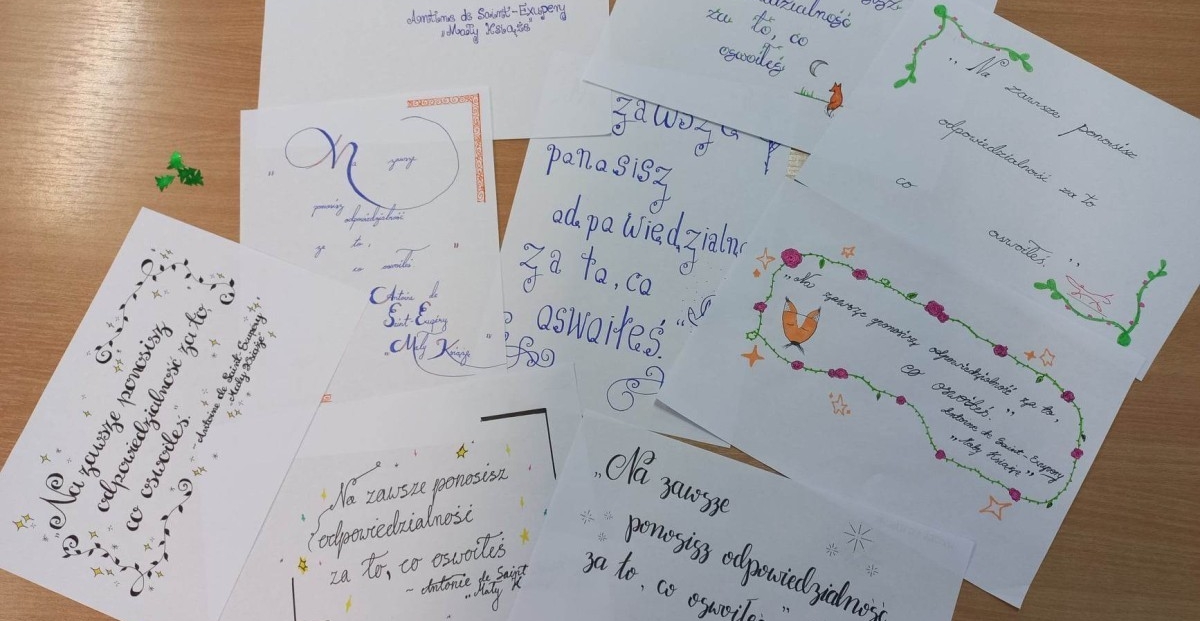 Antoine de Saint-Exupery
"Mały Książę"
za to, co
oswoiłeś
„Na
zawsze ponosisz
odpowiedzialność za to
co
oswoiłeś.”
„Na zawsze
ponosisz
odpowiedzialność
za to,
co
Antoine de
Saint-Exupéry
„Mały Książę”
zawsze
ponosisz
odpowiedzialno
za to, co
oswoiłeś.”
„Na zawsze ponosisz odpowiedzialność za to,
co oswoiłeś.”
Antoine de Saint-Exupery
„Mały Książę”
„Na zawsze ponosisz
odpowiedzialność za to,
co oswoiłeś.”
~ Antoine de Saint-Exupery
„Mały Książę”
Na zawsze ponosisz
odpowiedzialność
za to, co oswoiłeś
~ Antonie de Saint
„Mały K
„Na zawsze
ponosisz odpowiedzialność
za to, co oswoiłeś”